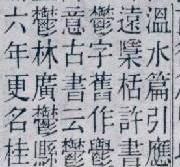 溫水篇引應
遠檃栝許書
鬱字舊作
意古書云
鬱林廣鬱縣
六年更名桂